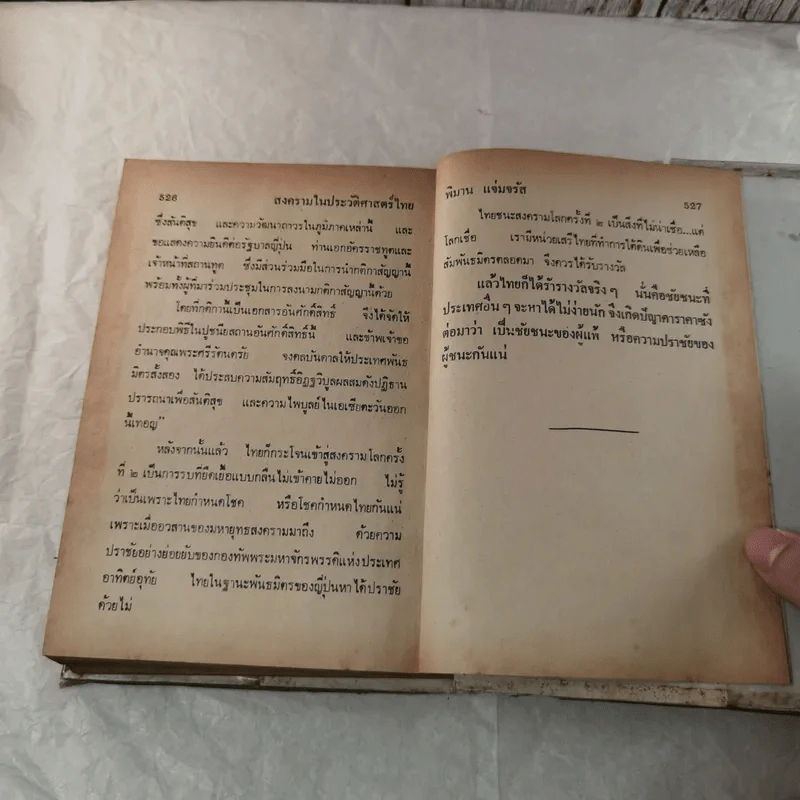 526 สงครามในประวัติศาสตร์ไทย
ซึ่งสันติสุข และความวัฒนาถาวรในภูมิภาคเหล่านี้ และ
ขอแสดงความยินดีต่อรัฐบาลญี่ปุ่น ท่านเอกอัครราชทูตและ
เจ้าหน้าที่สถานทูต ซึ่งมีส่วนร่วมมือในการนำกติกาสัญญานี้
พร้อมทั้งผู้ที่มาร่วมประชุมในการลงนามกติกาสัญญานี้ด้วย
โดยที่กติกานี้เป็นเอกสารอันศักดิ์สิทธิ์ จึงได้จัดให้
ประกอบพิธีในปูชนียสถานอันศักดิ์สิทธิ์นี้ และข้าพเจ้าขอ
อำนาจคุณพระศรีรัตนตรัย จงดลบันดาลให้ประเทศพันธ
มิตรทั้งสอง ได้ประสบความสัมฤทธิ์อิฏฐวิบูลผลสมดังปฏิธาน
ปรารถนาเพื่อสันติสุข และความไพบูลย์ในเอเซียตะวันออก
นี้เทอญ"
หลังจากนั้นแล้ว ไทยก็กระโจนเข้าสู่สงครามโลกครั้ง
ที่ ๒ เป็นการรบที่ยืดเยื้อแบบกลืนไม่เข้าคายไม่ออก ไม่รู้
ว่าเป็นเพราะไทยกำหนดโชค หรือโชคกำหนดไทยกันแน่
เพราะเมื่ออวสานของมหายุทธสงครามมาถึง ด้วยความ
ปราชัยอย่างย่อยยับของกองทัพพระมหาจักรพรรดิแห่งประเทศ
อาทิตย์อุทัย ไทยในฐานะพันธมิตรของญี่ปุ่นหาได้ปราชัย
ด้วยไม่
พิมาน แจ่มจรัส 527
ไทยชนะสงครามโลกครั้งที่ ๒ เป็นสิ่งที่ไม่น่าเชื่อ...แต่
โลกเชื่อ เรามีหน่วยเสรีไทยที่ทำการใต้ดินเพื่อช่วยเหลือ
สัมพันธมิตรตลอดมา จึงควรได้รับรางวัล
แล้วไทยก็ได้รับรางวัลจริง ๆ นั่นคือชัยชนะที่
ประเทศอื่น ๆ จะหาได้ไม่ง่ายนัก จึงเกิดปัญหาคาราคาซัง
ต่อมาว่า เป็นชัยชนะของผู้แพ้ หรือความปราชัยของ
ผู้ชนะกันแน่